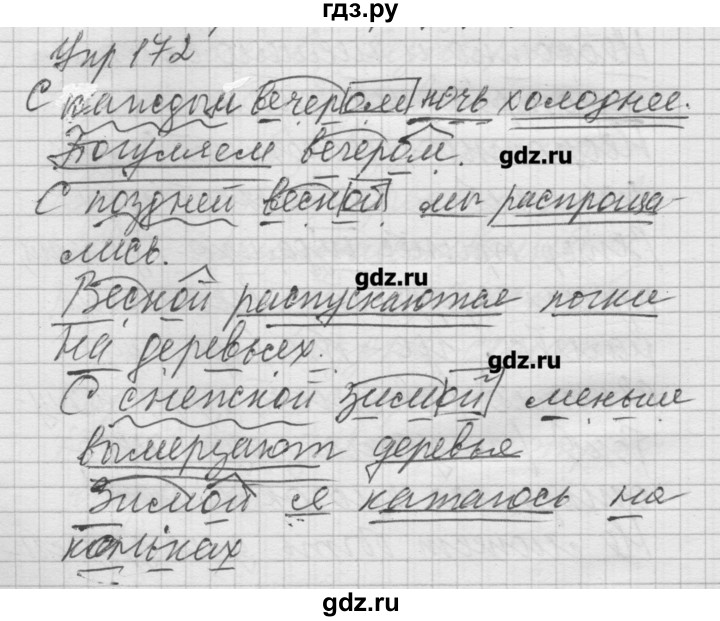 гдз.ру
Упр 172
С каждым вечером ночь холоднее.
Погуляем вечером.
gdz.ru
С поздней весной мы распроща-
лись.
gdz.ru
Весной распускаются почки
на деревьях.
gdz.ru
С снежной зимой меньше
вымерзают деревья
Зимой я катаюсь на
коньках
gdz.ru
gdz.ru